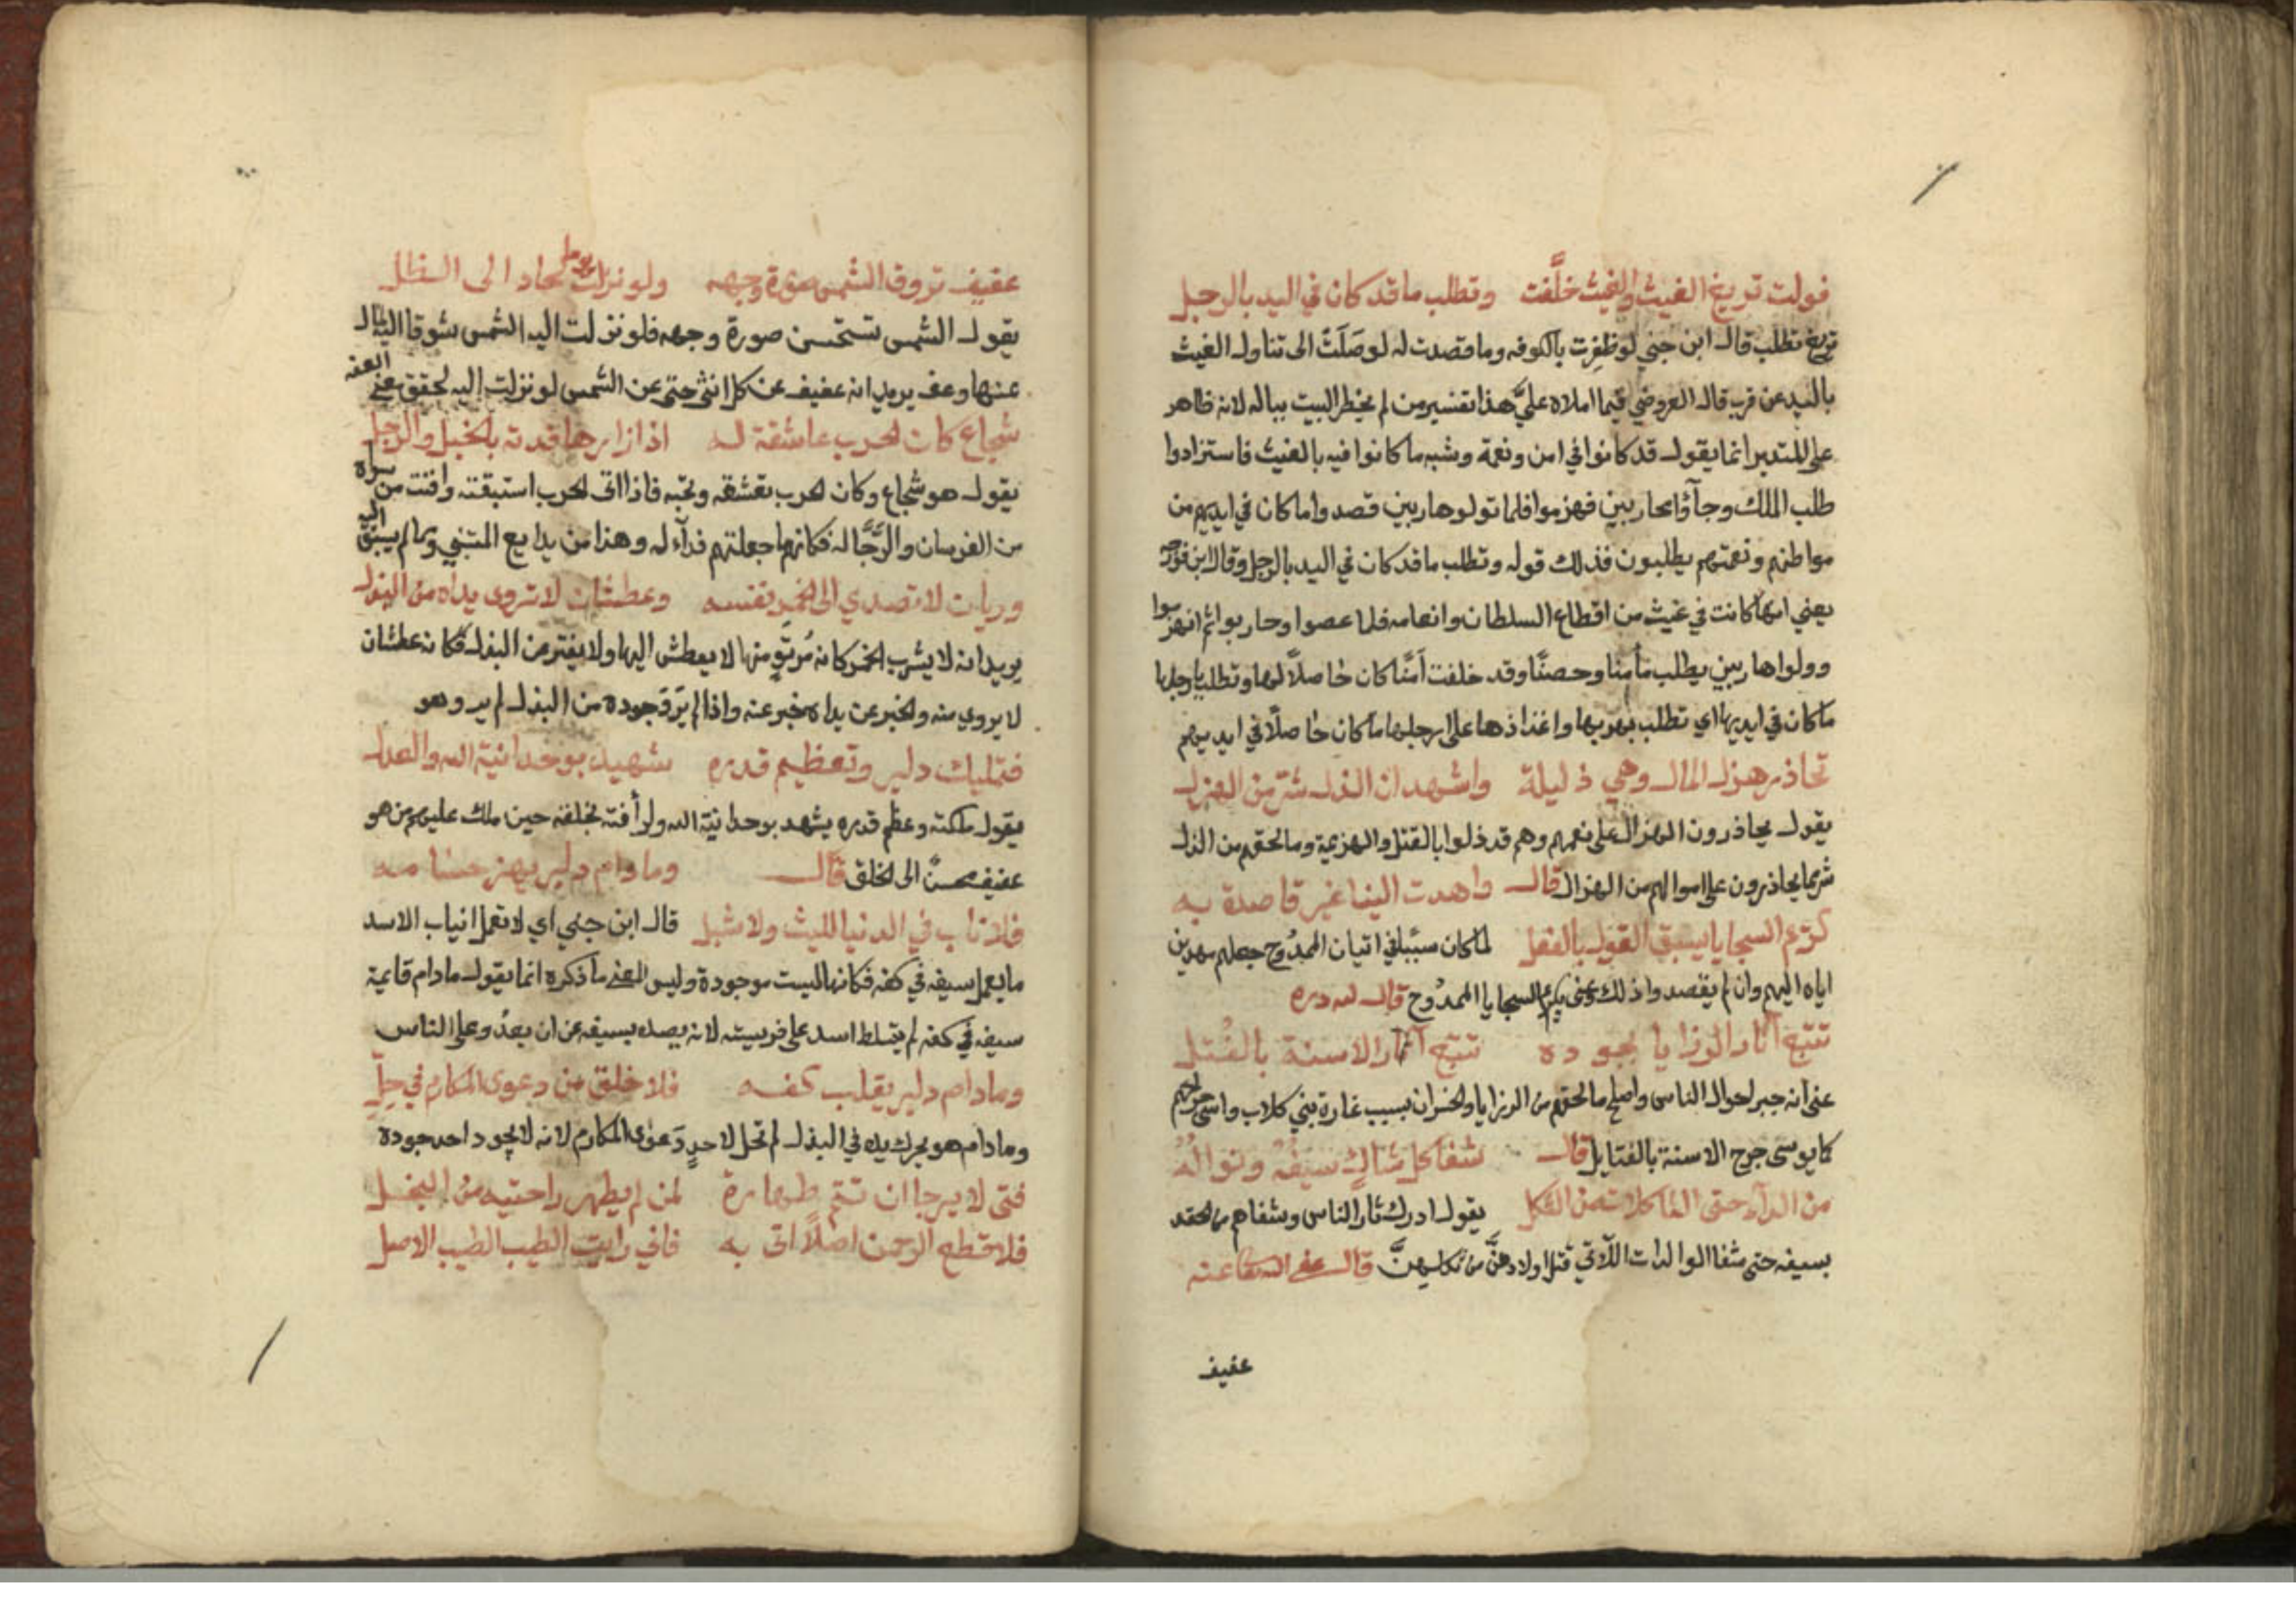 فولت تريغ الغيث والغيث خلّفت وتطلب ما قد كان في اليد بالرجل
تريغ تطلب قال ابن جني لو ظفرت بالكوفه وما قصدت له لوصلت الى تناول الغيث
باليد عن قرب قال العروضي فيما املاه عليّ هذا تفسير من لم يخطر البيت بباله لانه ظاهر
على المتدبر انما يقول قد كانوا في امن ونعمة وشبه ما كانوا فيه بالغيث فاستزادوا
طلب الملك وجآؤا محاربين فهزموا فلما تولوا هاربين قصدوا ما كان في ايديهم من
مواطنهم ونعمتهم يطلبون فذلك قوله وتطلب ما قد كان في اليد بالرجل وقال ابن فورجه
يعني انها كانت في غيث من اقطاع السلطان وانعامه فلما عصوا وحاربوا ثم انهزموا
وولوا هاربين يطلب مأمنا وحصنًا وقد خلفت أمنًا كان حاصلاً لها وتطلب بارجلها
ما كان في ايديها اي تطلب بهربها واغذاذها على ارجلها ما كان حاصلًا في ايديهم
تحاذر هزل المال وهي ذليلة واشهد ان الذل شر من الهزل
يقول يحاذرون الهزال على نعمهم وهم قد ذلوا بالقتل والهزيمة وما لحقهم من الذل
شر مما يحاذرون على اموالهم من الهزال قال واهدت الينا غير قاصدة به
كريم السجايا يسبق القول بالفعل لما كان سببًا في اتيان الممدوح جعلهم مهدين
اياه اليهم وان لم يقصدوا ذلك وعنى بكريم السجايا الممدوح قال لله دره
تتبع آثار الرزايا بجوده تتبع آثار الاسنة بالفُتل
عنى انه جبر احوال الناس واصلح ما لحقهم من الرزايا والخسران بسبب غارة بني كلاب واسى جراحهم
كما يوسى جرح الاسنة بالفتايل قال شفا كل شاكٍ سيفُه ونوالُه
من الدآء حتى الثاكلات من الثكل يقول ادرك ثار الناس وشفاهم من الحقد
بسيفه حتى شفا الوالدات اللاتي قتل اولادهنَّ من ثكلهنَّ قال عفى الله عنه
عفيف
عفيف تروق الشمس صورة وجهه ولو نزلت شوقا لحاد الى الظل
يقول الشمس تستحسن صورة وجهه فلو نزلت اليه الشمس شوقا اليه لمال
عنها وعف يريد انه عفيف عن كل انثى حتى عن الشمس لو نزلت اليه لحقق معنى العفه
شجاع كان الحرب عاشقة له اذا زارها فدته بالخيل والرجل
يقول هو شجاع وكان الحرب تعشقه وتحبه فاذا اتى الحرب استبقته وافنت من سواه
من الفرسان والرَّجَّاله فكانها جعلتهم فدآء له وهذا من بدايع المتنبي ومما لم يسبق اليه
وريان لا تصدي الى الخمر نفسه وعطشان لا تروى يداه من البذل
يريد انه لا يشرب الخمر كانه مُرتوٍ منها لا يعطش اليها ولا يفتر من البذل فكانه عطشان
لا يروي منه والخبر عن يداه خبر عنه واذا لم يَروَ جوده من البذل لم يرو هو
فتمليك دلير وتعظيم قدره شهيد بوحدانية الله والعدل
يقول ملكته وعظم قدره يشهد بوحدانية الله ولرأفته بخلقه حين ملك عليهم من هو
عفيف محسنٌ الى الخلق قال وما دام دلير يهز حساما مه
فلا ناب في الدنيا لليث ولا شبل قال ابن جني اي لا تعمل انياب الاسد
ما يعمل سيفه في كفه فكانها ليست موجودة وليس المعنى ما ذكره انما يقول ما دام قايمة
سيفه في كفه لم يتسلط اسد على فريسته لانه يصده بسيفه عن ان يعدُو على الناس
وما دام دلير يقلب كفه فلا خلق من دعوى المكارم في حِلِّ
وما دام هو يحرك يده في البذل لم تحل لاحدٍ دَعوَى المكارم لانه لا يجود احد جوده
فتى لا يرجا ان تتم طهارة لمن لم يطهر راحتيه من البخل
فلا قطع الرحمن اصلاً اتى به فاني رايت الطيب الطيب الاصل